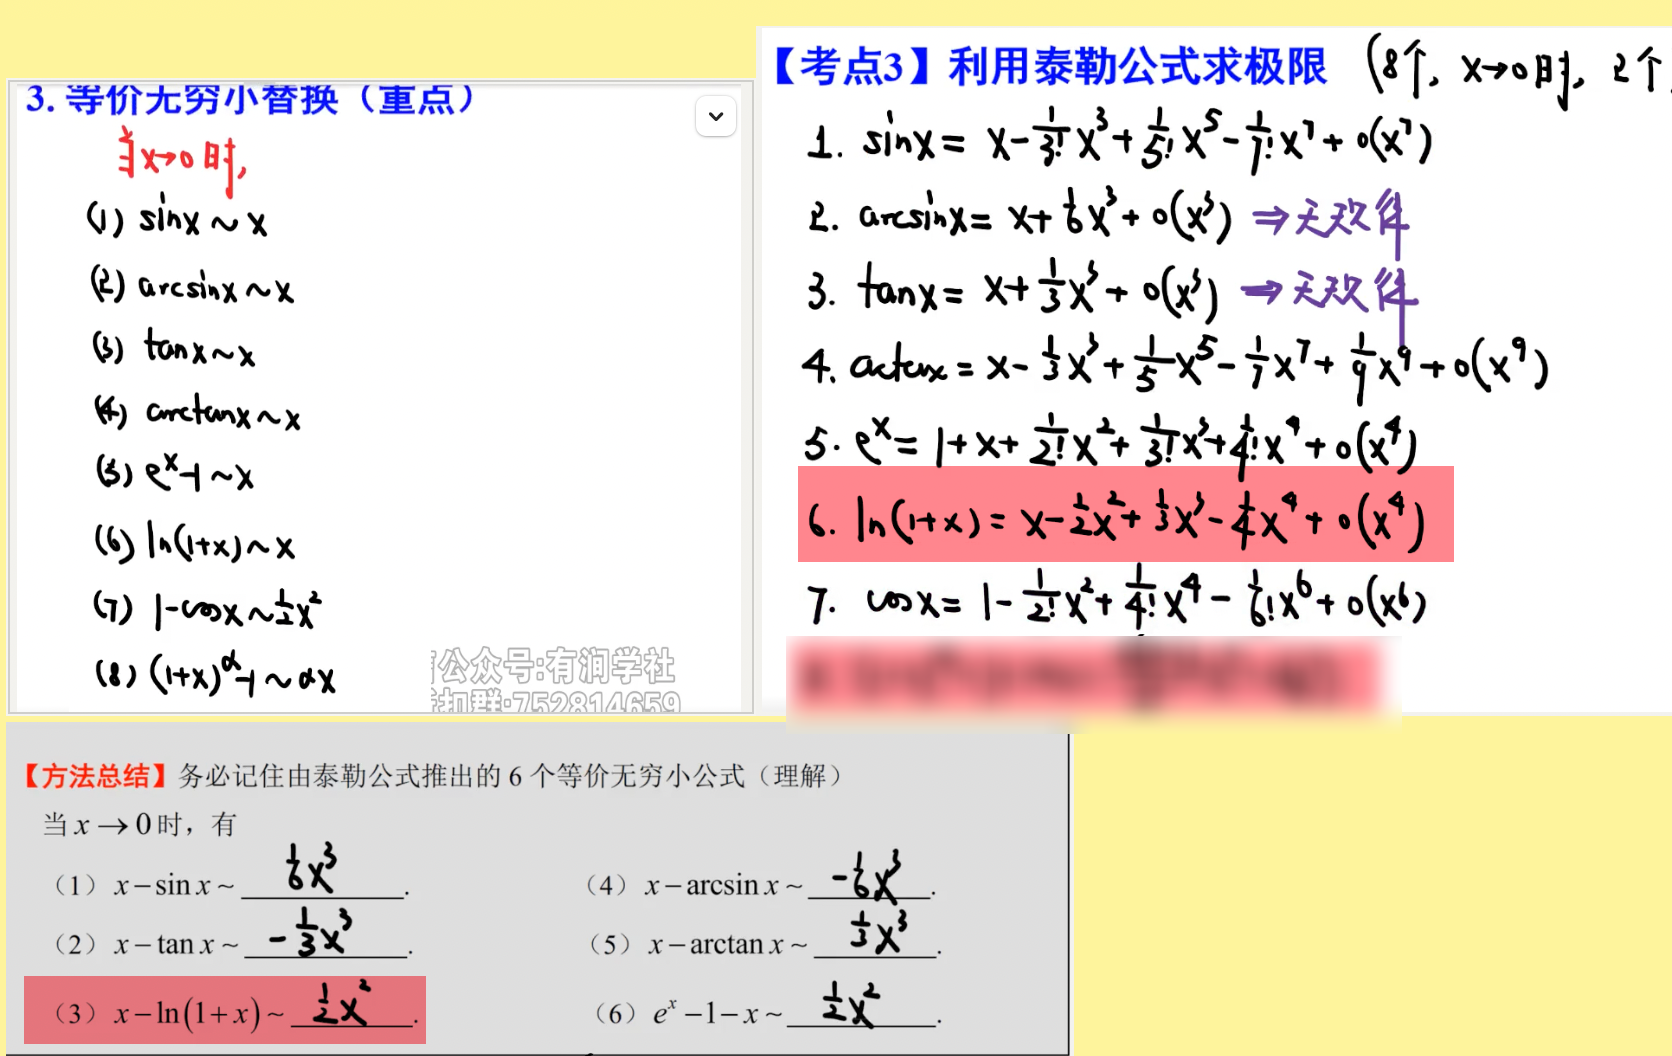 3. 等价无穷小替换（重点）
当x→0时,
(1) sinx ~ x
(2) arcsinx ~ x
(3) tanx ~ x
(4) arctanx ~ x
(5) eˣ-1 ~ x
(6) ln(1+x) ~ x
(7) 1-cosx ~ 1/2 x²
(8) (1+x)^α-1 ~ αx
公众号:有润学社
扣群:752814659
【考点3】利用泰勒公式求极限 (8个, x→0时, 2个
1. sinx = x - 1/3! x³ + 1/5! x⁵ - 1/7! x⁷ + o(x⁷)
2. arcsinx = x + 1/6 x³ + o(x³) ⇒ 无规律
3. tanx = x + 1/3 x³ + o(x³) ⇒ 无规律
4. arctanx = x - 1/3 x³ + 1/5 x⁵ - 1/7 x⁷ + 1/9 x⁹ + o(x⁹)
5. eˣ = 1 + x + 1/2! x² + 1/3! x³ + 1/4! x⁴ + o(x⁴)
6. ln(1+x) = x - 1/2 x² + 1/3 x³ - 1/4 x⁴ + o(x⁴)
7. cosx = 1 - 1/2! x² + 1/4! x⁴ - 1/6! x⁶ + o(x⁶)
【方法总结】务必记住由泰勒公式推出的 6 个等价无穷小公式（理解）
当 x→0 时，有
（1）x-sin x ~ 1/6 x³.
（4）x-arcsin x ~ -1/6 x³.
（2）x-tan x ~ -1/3 x³.
（5）x-arctan x ~ 1/3 x³.
（3）x-ln(1+x) ~ 1/2 x².
（6）eˣ-1-x ~ 1/2 x².